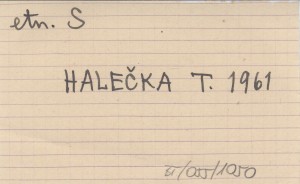 etn. S
HALEČKA T. 1961
/055/1050